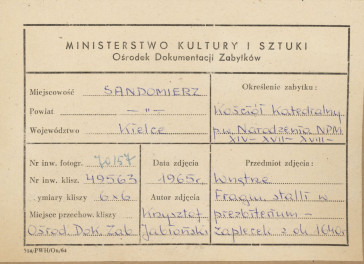 MINISTERSTWO KULTURY I SZTUKI
Ośrodek Dokumentacji Zabytków
Miejscowość SANDOMIERZ
Powiat — „ —
Województwo Kielce
Określenie zabytku:
Kościół Katedralny
p.w. Narodzenia NPM
XIV - XVII - XVIII
Nr inw. fotogr.
Nr inw. klisz. 49563
ymiary kliszy 6x6
Miejsce przechow. kliszy
Ośrod. Dok. Zab
Data zdjęcia
1965r.
Autor zdjęcia
Krzysztof
Jabłoński
Przedmiot zdjęcia:
Wnętrze
Fragm. stalli w
prezbiterium -
zaplecek z ok. 1640